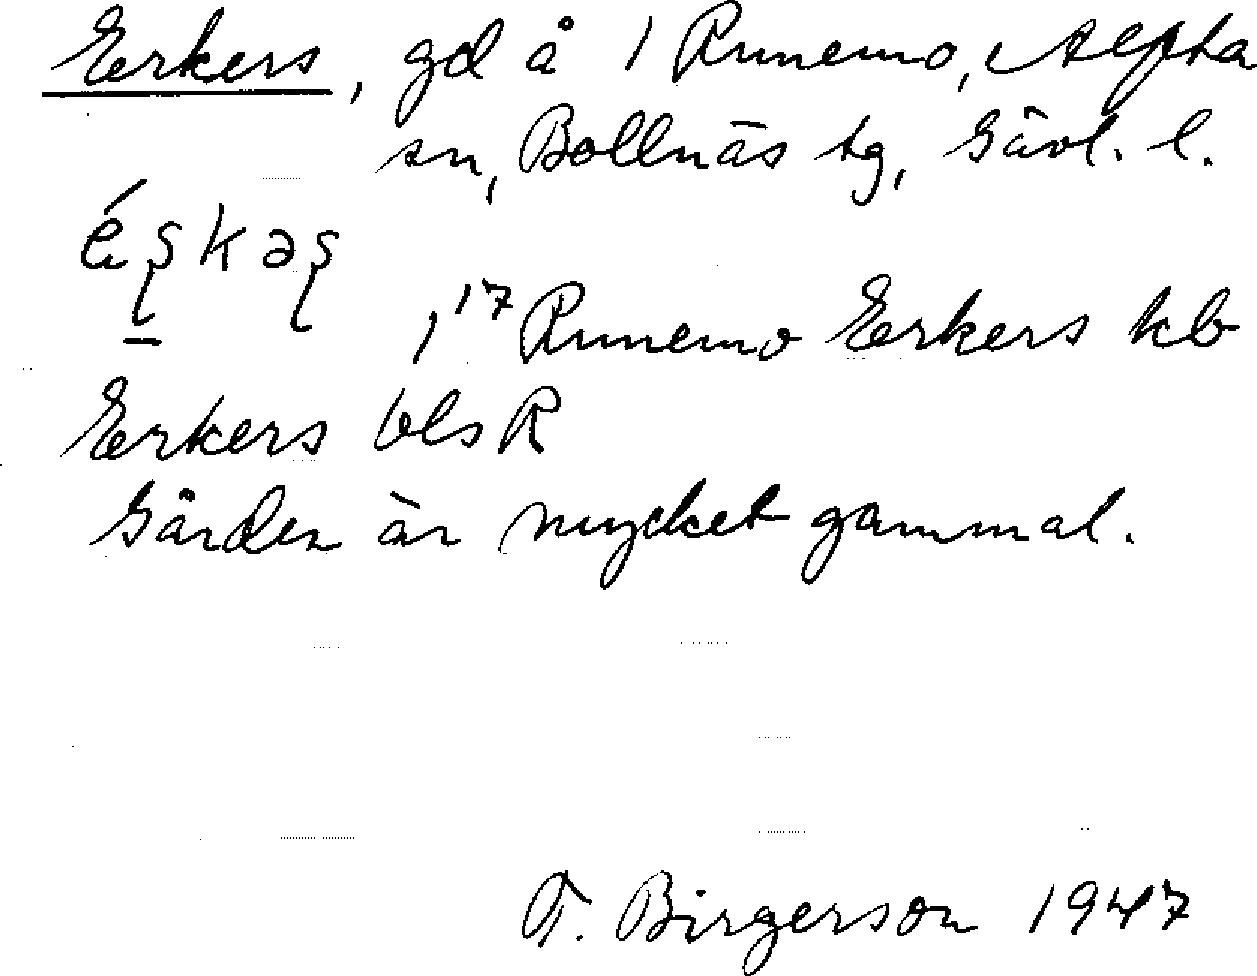 Erkers, gd å 1 Runemo, Alfta
sn, Bollnäs tg, Gävl. l.
éʂkəʂ
1¹⁷ Runemo Erkers kb
Erkers bls R
Gården är mycket gammal.
F. Birgerson 1947